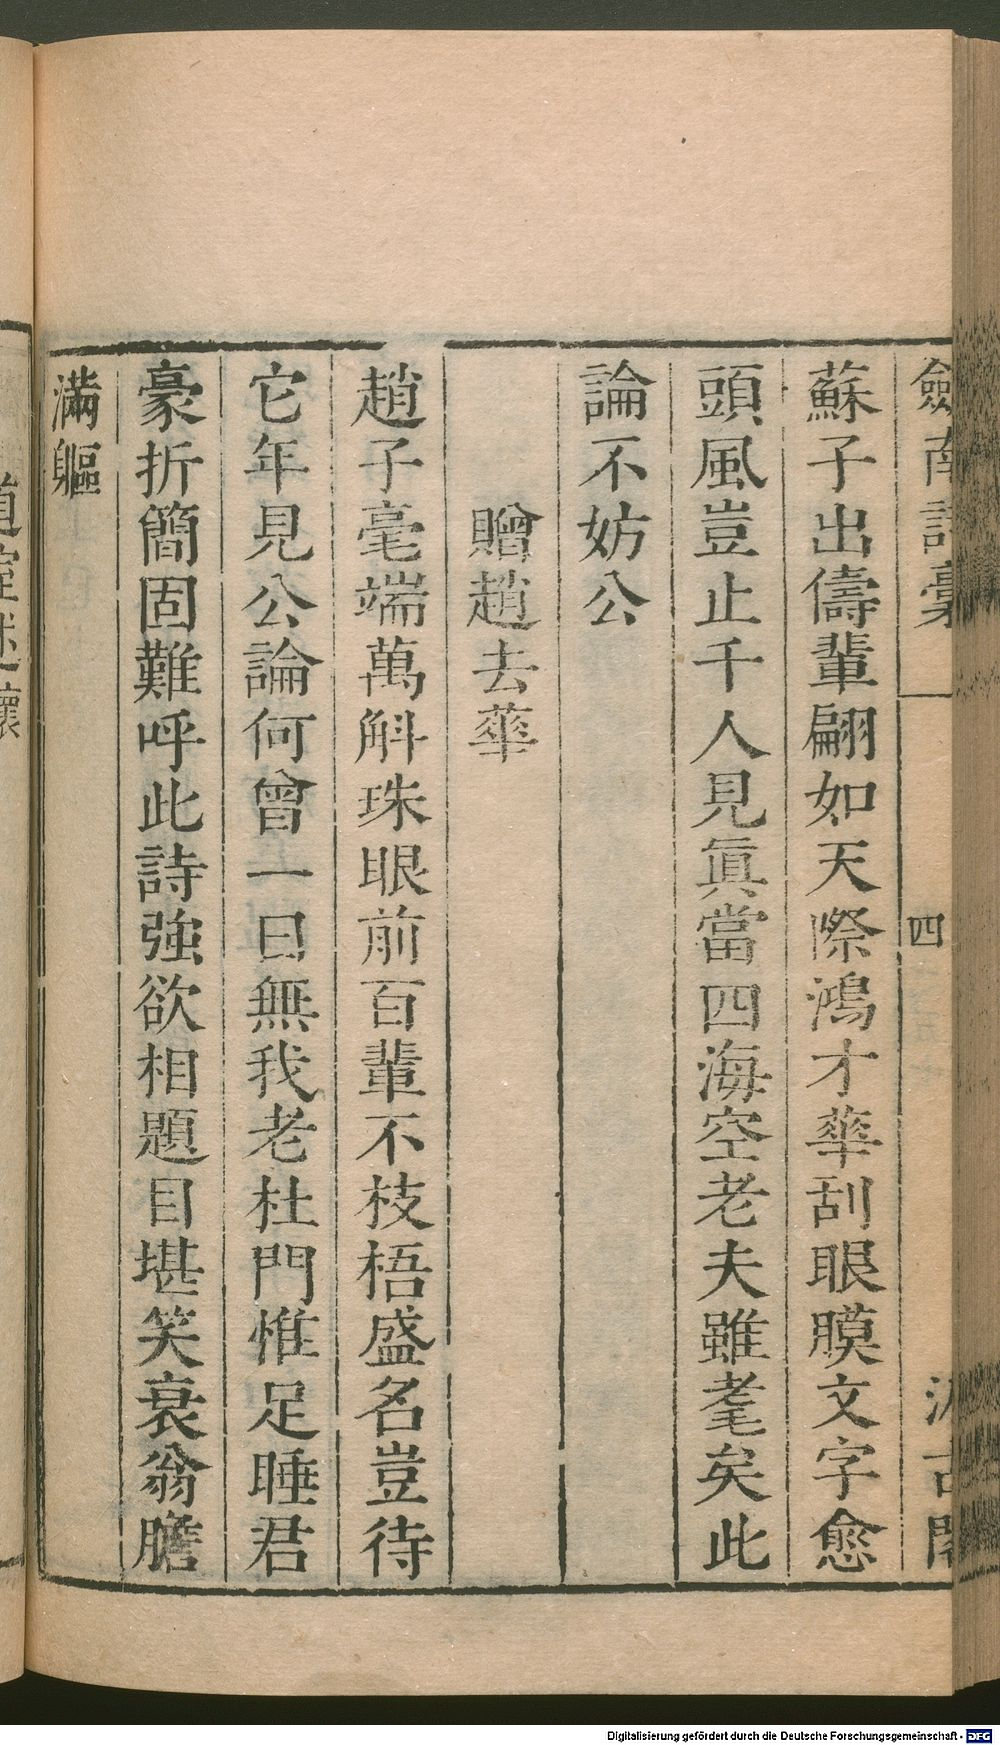 劔南詩稾
四
汲古閣
蘇子出儔輩翩如天際鴻才華刮眼膜文字愈
頭風豈止千人見眞當四海空老夫雖耄矣此
論不妨公
贈趙去華
趙子毫端萬斛珠眼前百輩不枝梧盛名豈待
它年見公論何曾一日無我老杜門惟足睡君
豪折簡固難呼此詩強欲相題目堪笑衰翁膽
滿軀
Digitalisierung gefördert durch die Deutsche Forschungsgemeinschaft - DFG